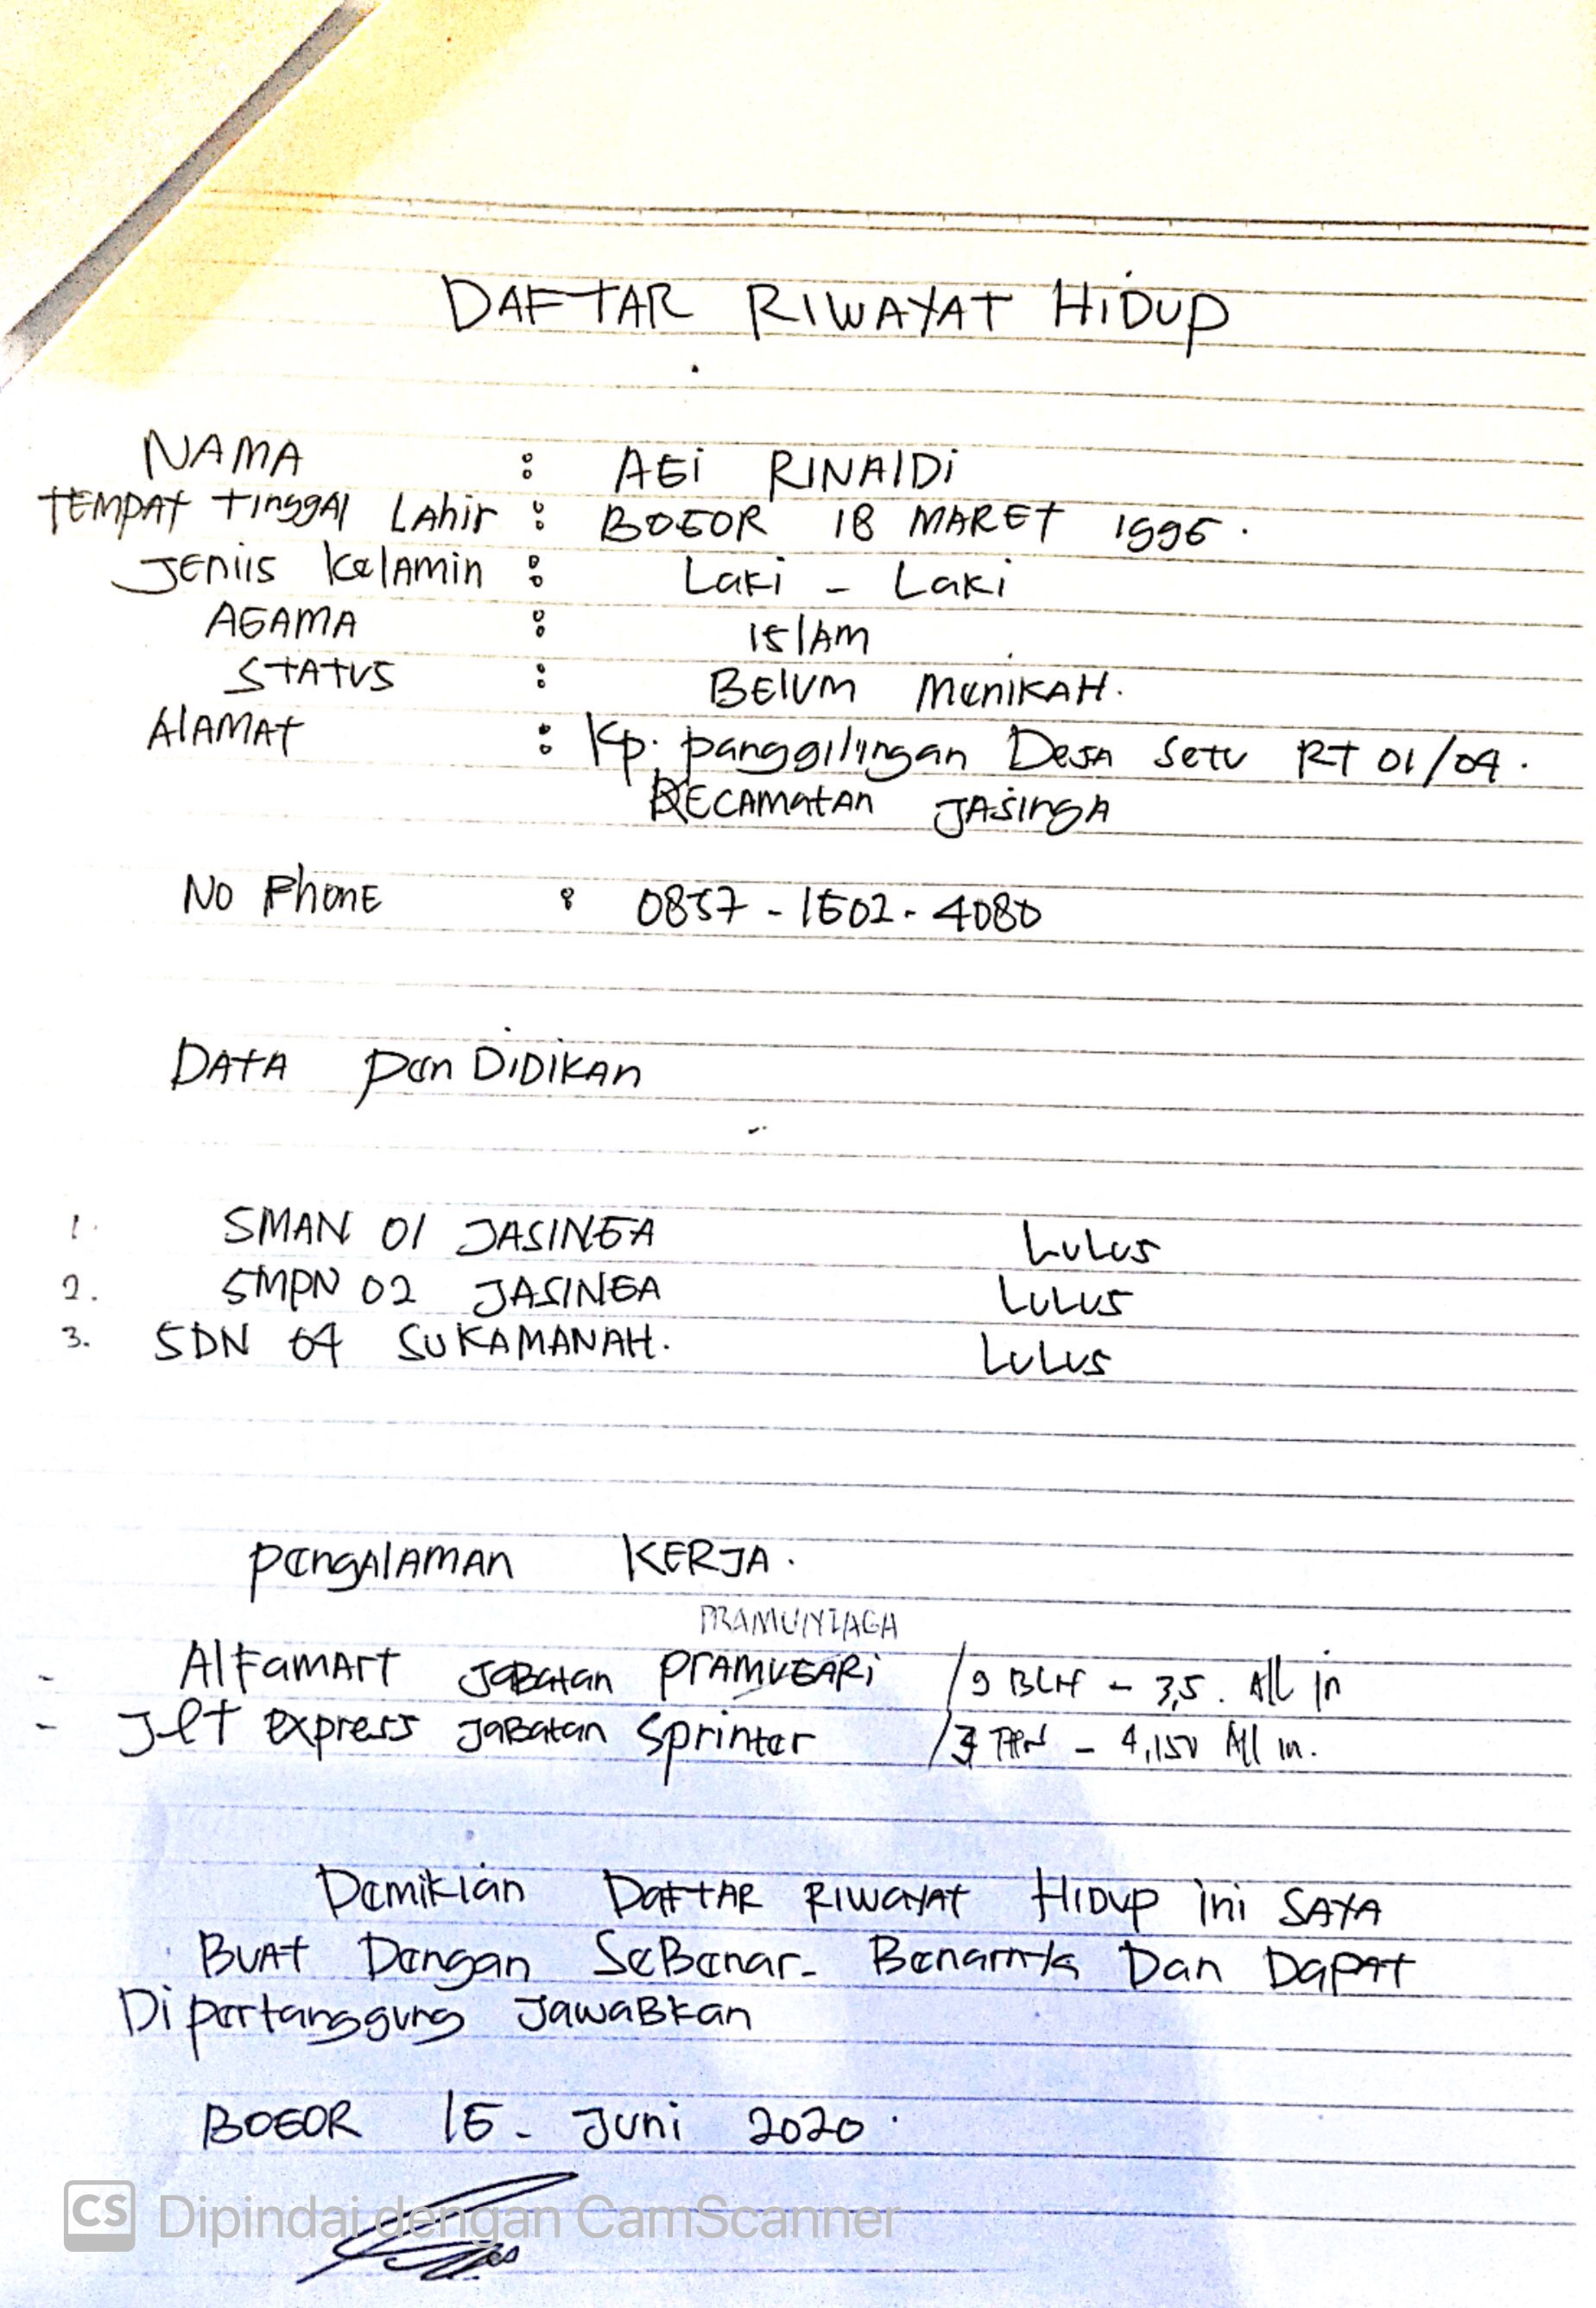 DAFTAR RIWAYAT HIDUP
NAMA : AGI RINALDI
TEMPAT TINGGAL LAHIR : BOGOR 18 MARET 1995.
JENIIS KELAMIN : LAKI - LAKI
AGAMA : ISLAM
STATUS : BELUM MENIKAH.
ALAMAT : Kp. panggilingan Desa Setu RT 01/04.
KECAMATAN JASINGA
No Phone : 0857-1502-4080
DATA PENDIDIKAN
1. SMAN 01 JASINGA LULUS
2. SMPN 02 JASINGA LULUS
3. SDN 04 SUKAMANAH. LULUS
PENGALAMAN KERJA.
PRAMUNIAGA
- Alfamart Jabatan PRAMUGARI / 9 BLN - 3,5. All in
- J&T express Jabatan Sprinter / 3 THN - 4,150 All in.
Demikian DAFTAR RIWAYAT HIDUP ini SAYA
BUAT Dengan SeBenar-Benarnya Dan DAPAT
Dipertanggung JawaBkan
BOGOR 15 - Juni 2020.
CS Dipindai dengan CamScanner